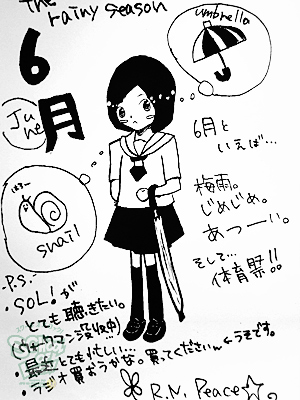 the
rainy season
6月
June
umbrella
snail
6月と
いえば…
梅雨。
じめじめ。
あっつーい。
そして…
体育祭!!
P.S.
・SOL!が
とても聴きたい。
(ウォークマン没収中)
・最近とても忙しい…
・ラジオ買おうかな。買ってくださいん←うそです。
R.N. Peace☆。